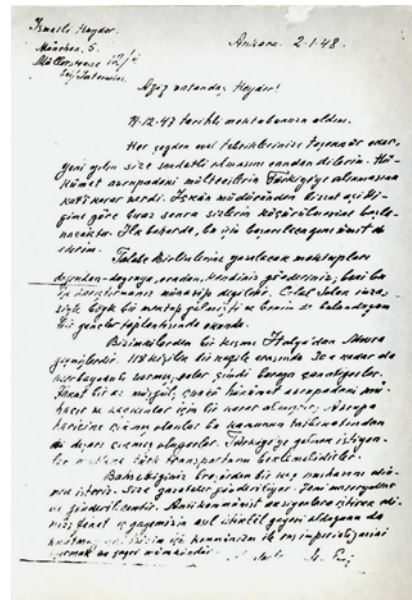 Ismaili Heyder.
München. 5.
Müllerstrasse 12/I
bei
Ankara. 2.1.48.
Aziz vatandaş Heyder!
11.12.47 tarihli mektubunuzu aldım.
Her şeyden evvel tebriklerinize teşekkür eder,
yeni yılın size saadetli olmasını candan dilerim. Hü-
kümet avrupadeni mültecilerin Türkiye'ye alınmasına
kati karar verdi. İskân müdüründen bizzat
göre biraz sonra sizlerin köçürülmesine başla-
nacaktır. İlk baharda, bu işin başarılacağını ümit e-
derim.
Talebe Birliklerine yazılacak mektupları
doğrudan-doğruya, oradan, kendiniz gönderiniz, beni bu
işe münasip değildir. Celal
böyle bir mektup gelmişti ve benim de bulunduğum
bir gençler toplantısında okundu.
Bizimkilerden bir kısmı İtalya'dan Mısıra
geçmişlerdir. kişilik bir kafile arasında 30 a kadar da
azerbaycanlı varmış, şimdi buraya çalışıyorlar.
Fakat bir az müşgül, çünkü hükümet avrupadeni mü-
hacir ve kaçkınlar için bir karar almıştır, Avrupa
haricine çıkmış olanlar bu kanunun tatbikatından
dışarı çıkmış oluyorlar. Türkiye'ye gelmek istiyen-
ler türk transportunu beklemelidirler.
Bahsettiğiniz broşürden bir kaç nushasını
isteriz. Size gazeteler gönderiliyor. Yeni
de gönderilecektir. Antikommünist iştirak edi-
niz fakat gayemizin asıl istiklâl gayesi olduğunu da
unutmayınız. Bizim için kommünizm ile rus imperializmini
ayırmak mümkündür.